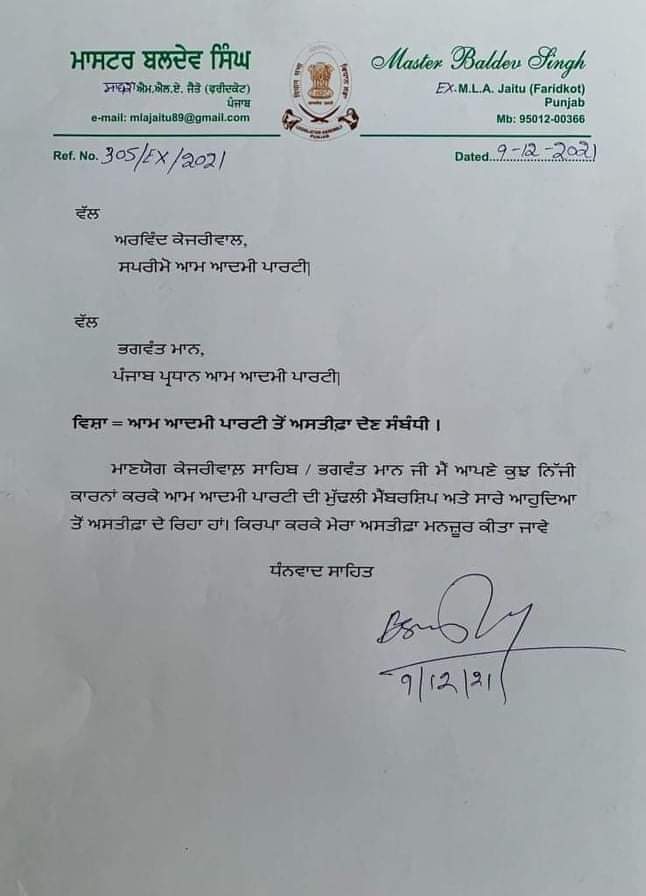 ਮਾਸਟਰ ਬਲਦੇਵ ਸਿੰਘ
ਸਾਬਕਾ ਐਮ.ਐਲ.ਏ. ਜੈਤੋ (ਫਰੀਦਕੋਟ)
ਪੰਜਾਬ
e-mail: mlajaitu89@gmail.com
LEGISLATIVE ASSEMBLY
PUNJAB
Master Baldev Singh
EX. M.L.A. Jaitu (Faridkot)
Punjab
Mb: 95012-00366
Ref. No. 305/EX/2021
Dated 9-12-2021
ਵੱਲ
ਅਰਵਿੰਦ ਕੇਜਰੀਵਾਲ,
ਸਪਰੀਮੋ ਆਮ ਆਦਮੀ ਪਾਰਟੀ|
ਵੱਲ
ਭਗਵੰਤ ਮਾਨ,
ਪੰਜਾਬ ਪ੍ਰਧਾਨ ਆਮ ਆਦਮੀ ਪਾਰਟੀ|
ਵਿਸ਼ਾ = ਆਮ ਆਦਮੀ ਪਾਰਟੀ ਤੋਂ ਅਸਤੀਫ਼ਾ ਦੇਣ ਸੰਬੰਧੀ ।
ਮਾਣਯੋਗ ਕੇਜਰੀਵਾਲ਼ ਸਾਹਿਬ / ਭਗਵੰਤ ਮਾਨ ਜੀ ਮੈਂ ਆਪਣੇ ਕੁਝ ਨਿੱਜੀ
ਕਾਰਨਾਂ ਕਰਕੇ ਆਮ ਆਦਮੀ ਪਾਰਟੀ ਦੀ ਮੁੱਢਲੀ ਮੈਂਬਰਸ਼ਿਪ ਅਤੇ ਸਾਰੇ ਆਹੁਦਿਆ
ਤੋਂ ਅਸਤੀਫ਼ਾ ਦੇ ਰਿਹਾ ਹਾਂ। ਕਿਰਪਾ ਕਰਕੇ ਮੇਰਾ ਅਸਤੀਫ਼ਾ ਮਨਜ਼ੂਰ ਕੀਤਾ ਜਾਵੇ
ਧੰਨਵਾਦ ਸਾਹਿਤ
9/12/21